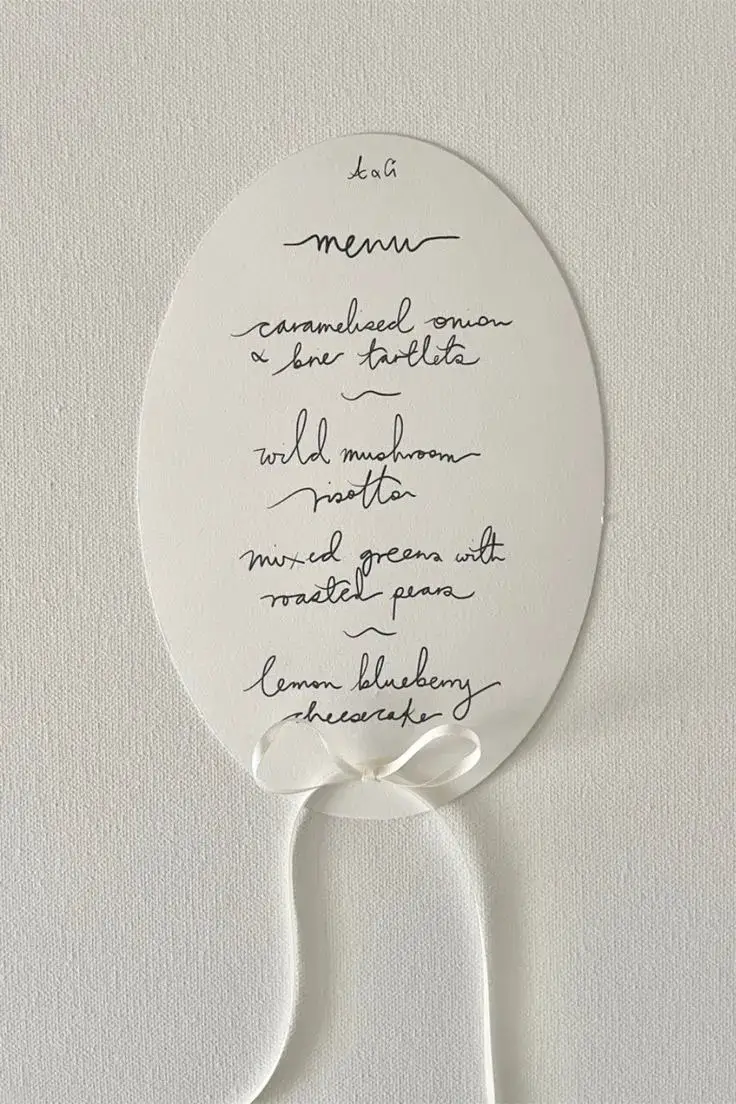 A & G
menu
caramelised onion
& brie tartlets
wild mushroom
risotto
mixed greens with
roasted pears
lemon blueberry
cheesecake